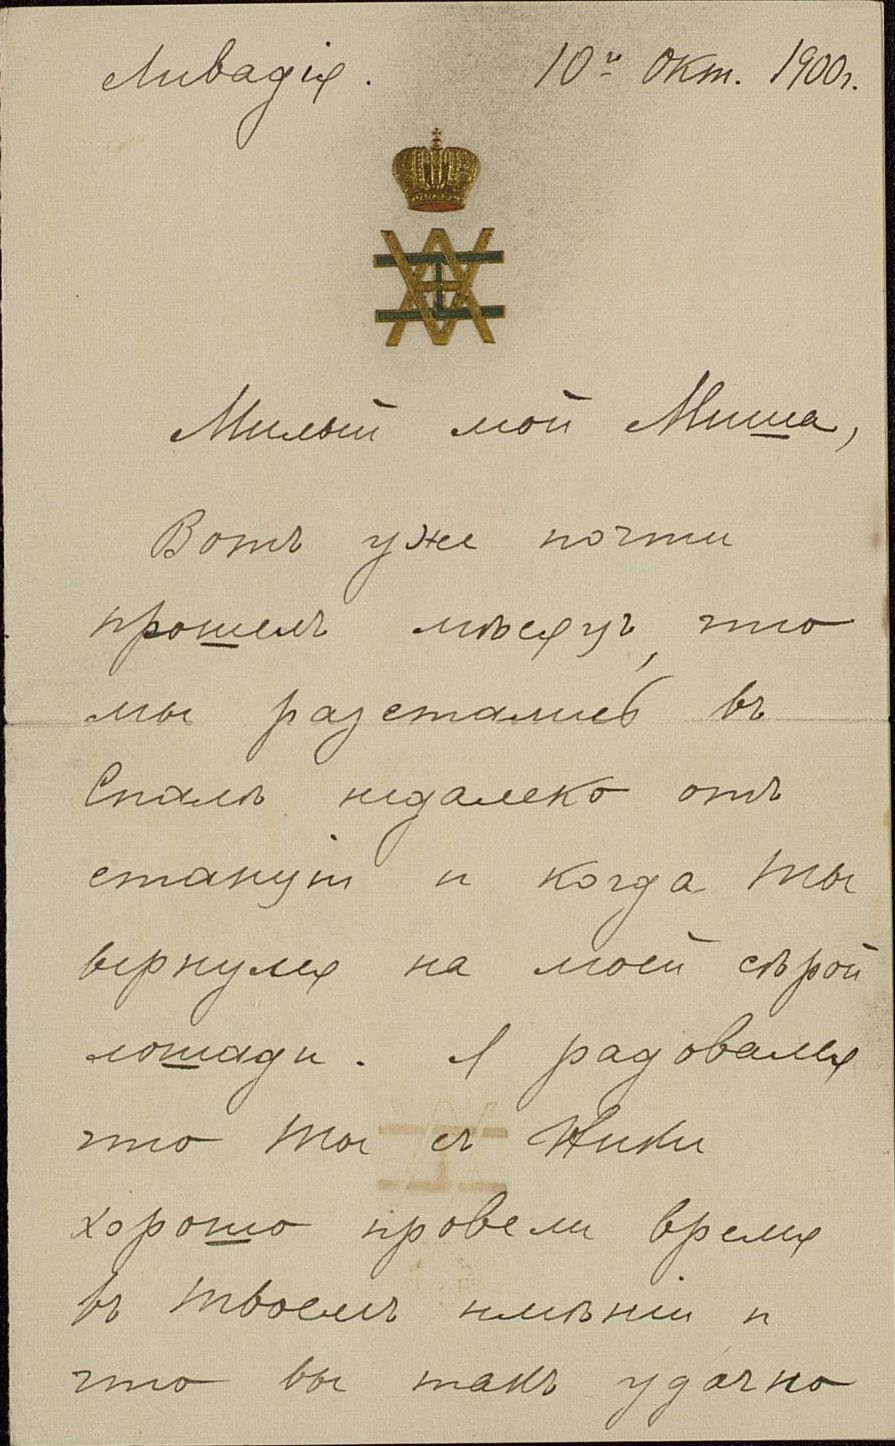 Ливадія. 10го Окт. 1900г.
Милый мой Миша,
Вотъ уже почти
прошелъ мѣсяцъ, что
мы разстались въ
Спалѣ недалеко отъ
станціи и когда ты
вернулся на моей сѣрой
лошади. Я радовался
что ты съ Ники
хорошо провели время
въ твоемъ имѣніи и
что вы такъ удачно